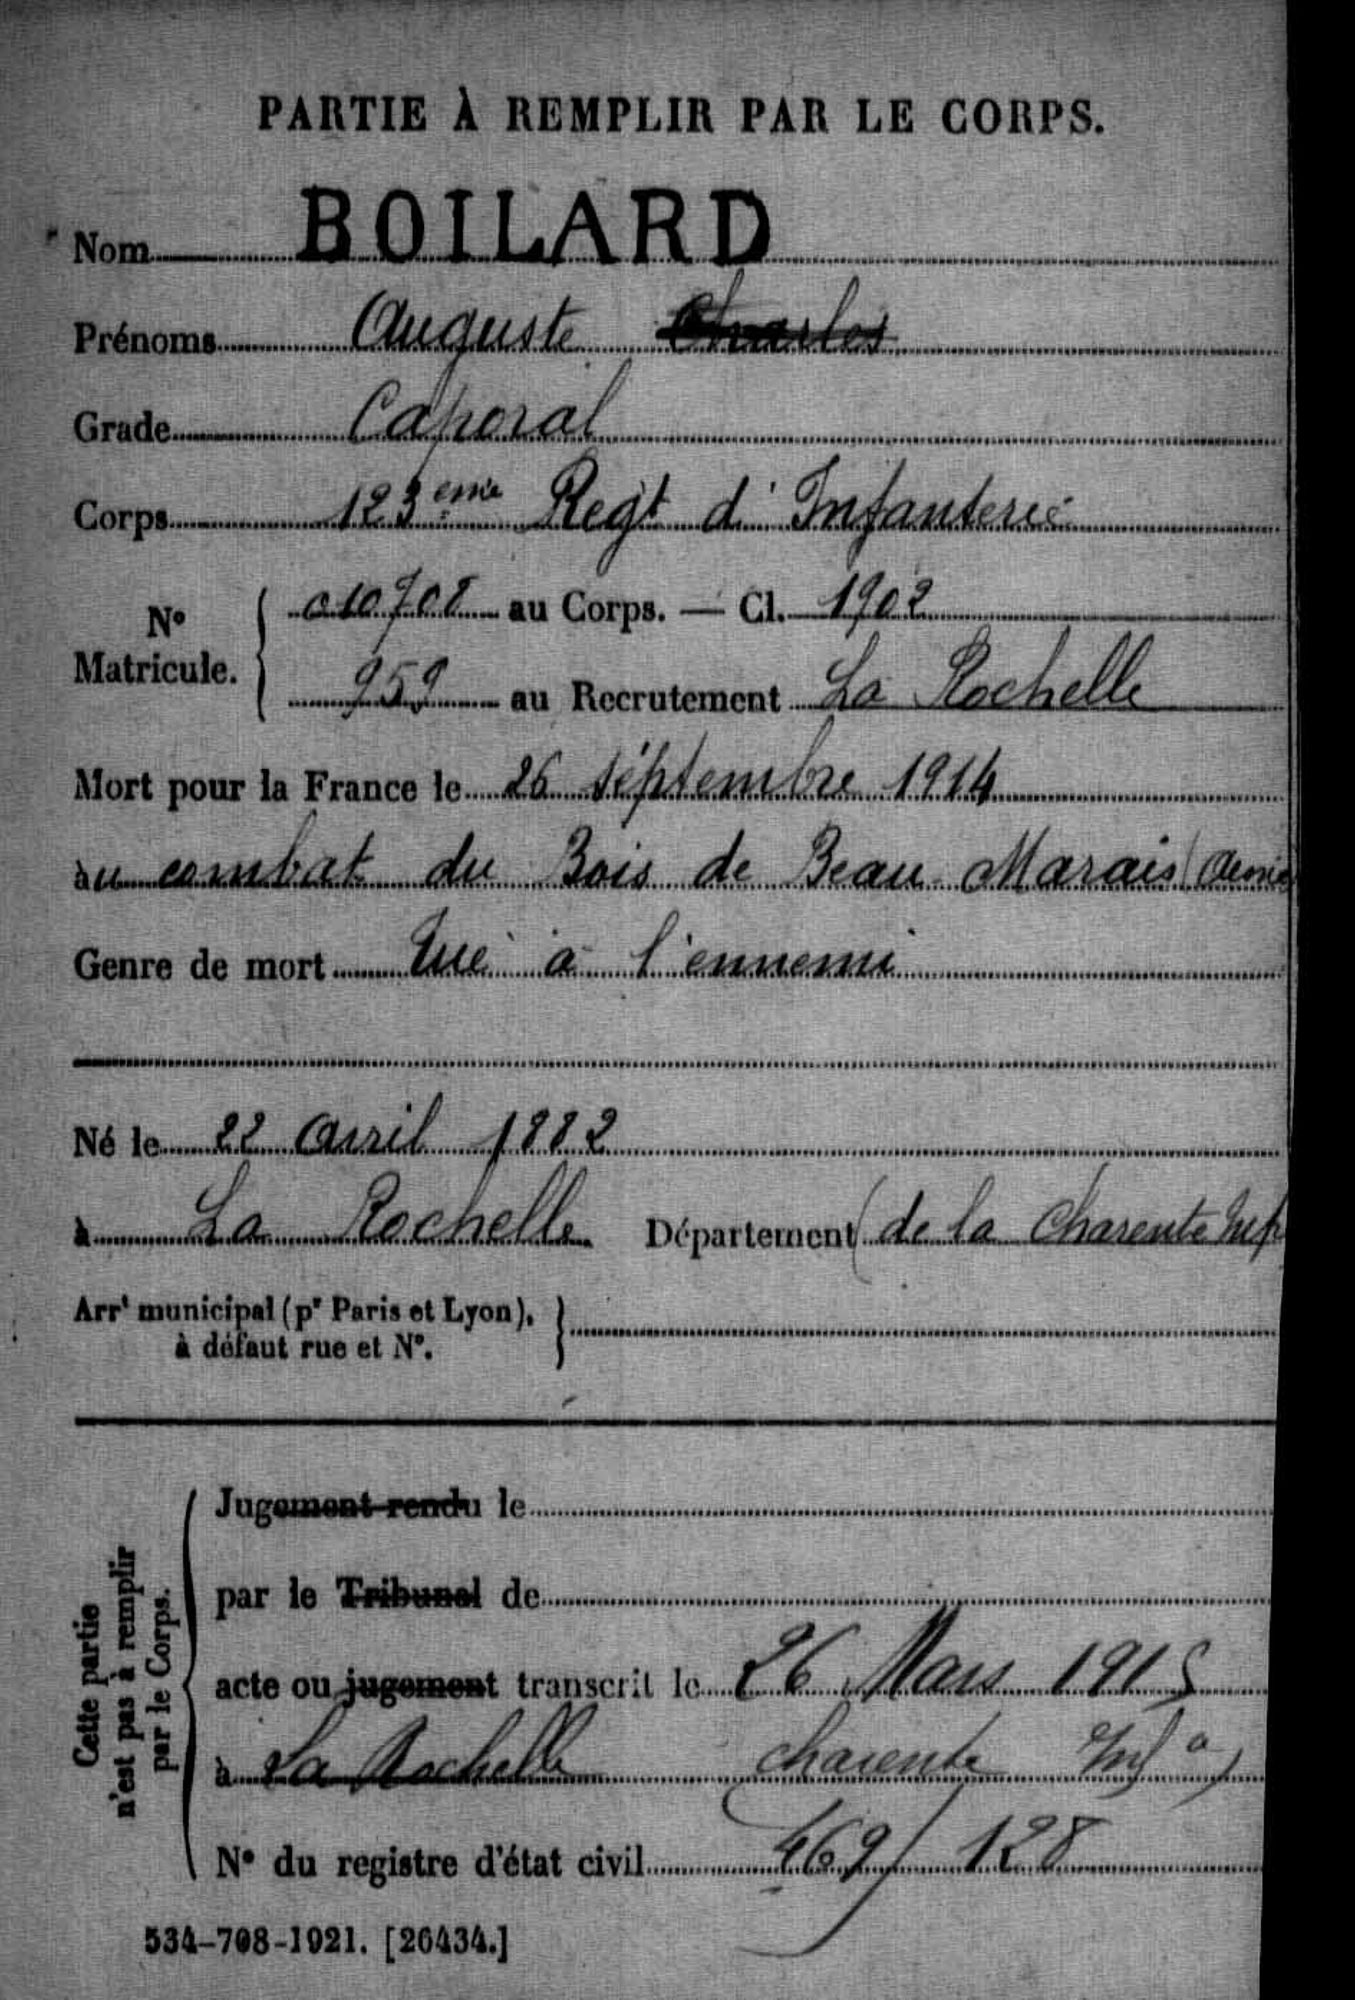 PARTIE À REMPLIR PAR LE CORPS.
Nom BOILARD
Prénoms Auguste Charles
Grade Caporal
Corps 123eme Regt d'Infanterie
No Matricule. 010708 au Corps. — Cl. 1902
959 au Recrutement La Rochelle
Mort pour la France le 26 septembre 1914
au combat du Bois de Beau Marais (Aisne
Genre de mort Tué à l'ennemi
Né le 22 avril 1882
à La Rochelle Département (de la Charente Inf
Arrt municipal (pr Paris et Lyon),
à défaut rue et No.
Cette partie
n'est pas à remplir
par le Corps.
Jugement rendu le
par le Tribunal de
acte ou jugement transcrit le 26 Mars 1915
à La Rochelle Charente Infre
No du registre d'état civil 469/128
534-708-1921. [26434.]